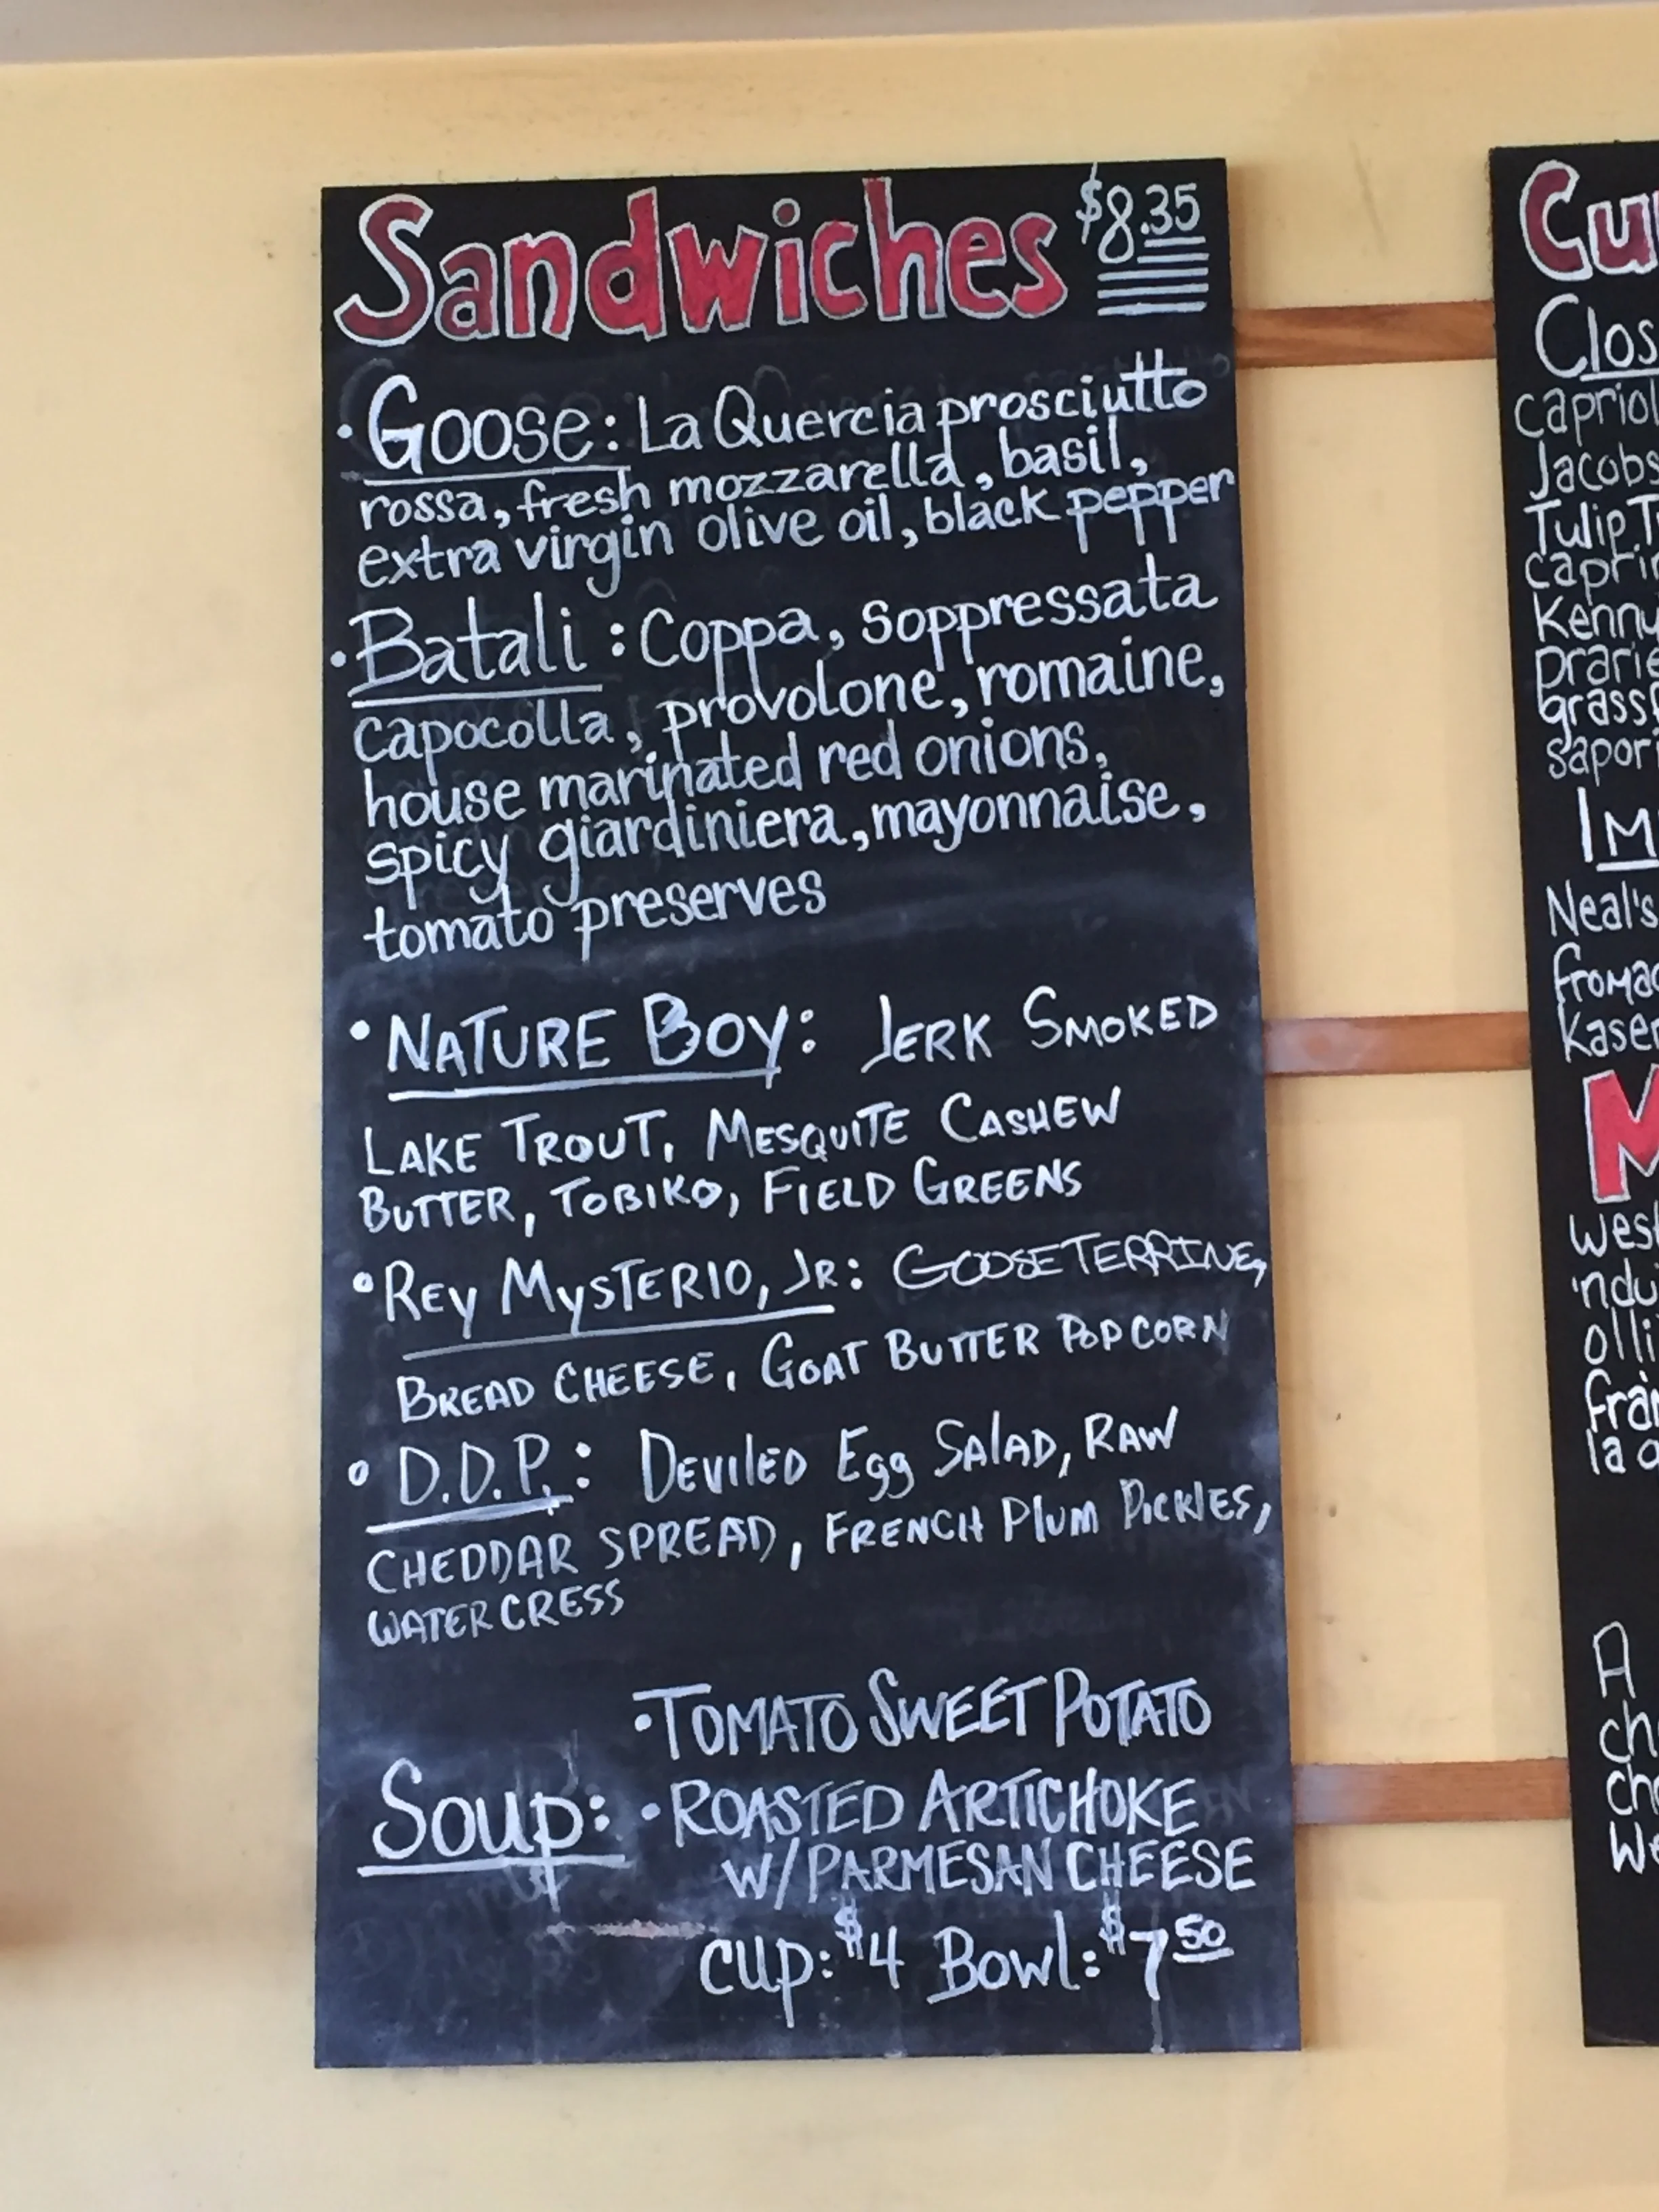 Sandwiches $8.35
• Goose: La Quercia prosciutto
rossa, fresh mozzarella, basil,
extra virgin olive oil, black pepper
• Batali: Coppa, Soppressata
capocolla, provolone, romaine,
house marinated red onions,
spicy giardiniera, mayonnaise,
tomato preserves
• NATURE BOY: JERK SMOKED
LAKE TROUT, MESQUITE CASHEW
BUTTER, TOBIKO, FIELD GREENS
• REY MYSTERIO, JR: GOOSE TERRINE,
BREAD CHEESE, GOAT BUTTER POPCORN
• D.D.P.: DEVILED EGG SALAD, RAW
CHEDDAR SPREAD, FRENCH PLUM PICKLES,
WATERCRESS
• TOMATO SWEET POTATO
Soup: • ROASTED ARTICHOKE
W/PARMESAN CHEESE
CUP: $4 Bowl: $7 50
Cu
Clos
capriol
Jacobs
Tulip T
caprin
Kenny
prarie
grass
sapori
IM
Neal's
fromag
Kaser
M
West
ndu
olli
fra
la
A
ch
ch
We